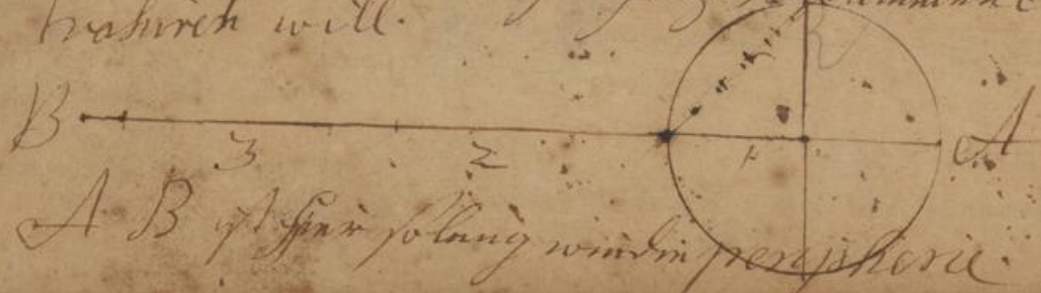 will.
B 3 2 1 A
A B ist hier so lang wie die peripherie.